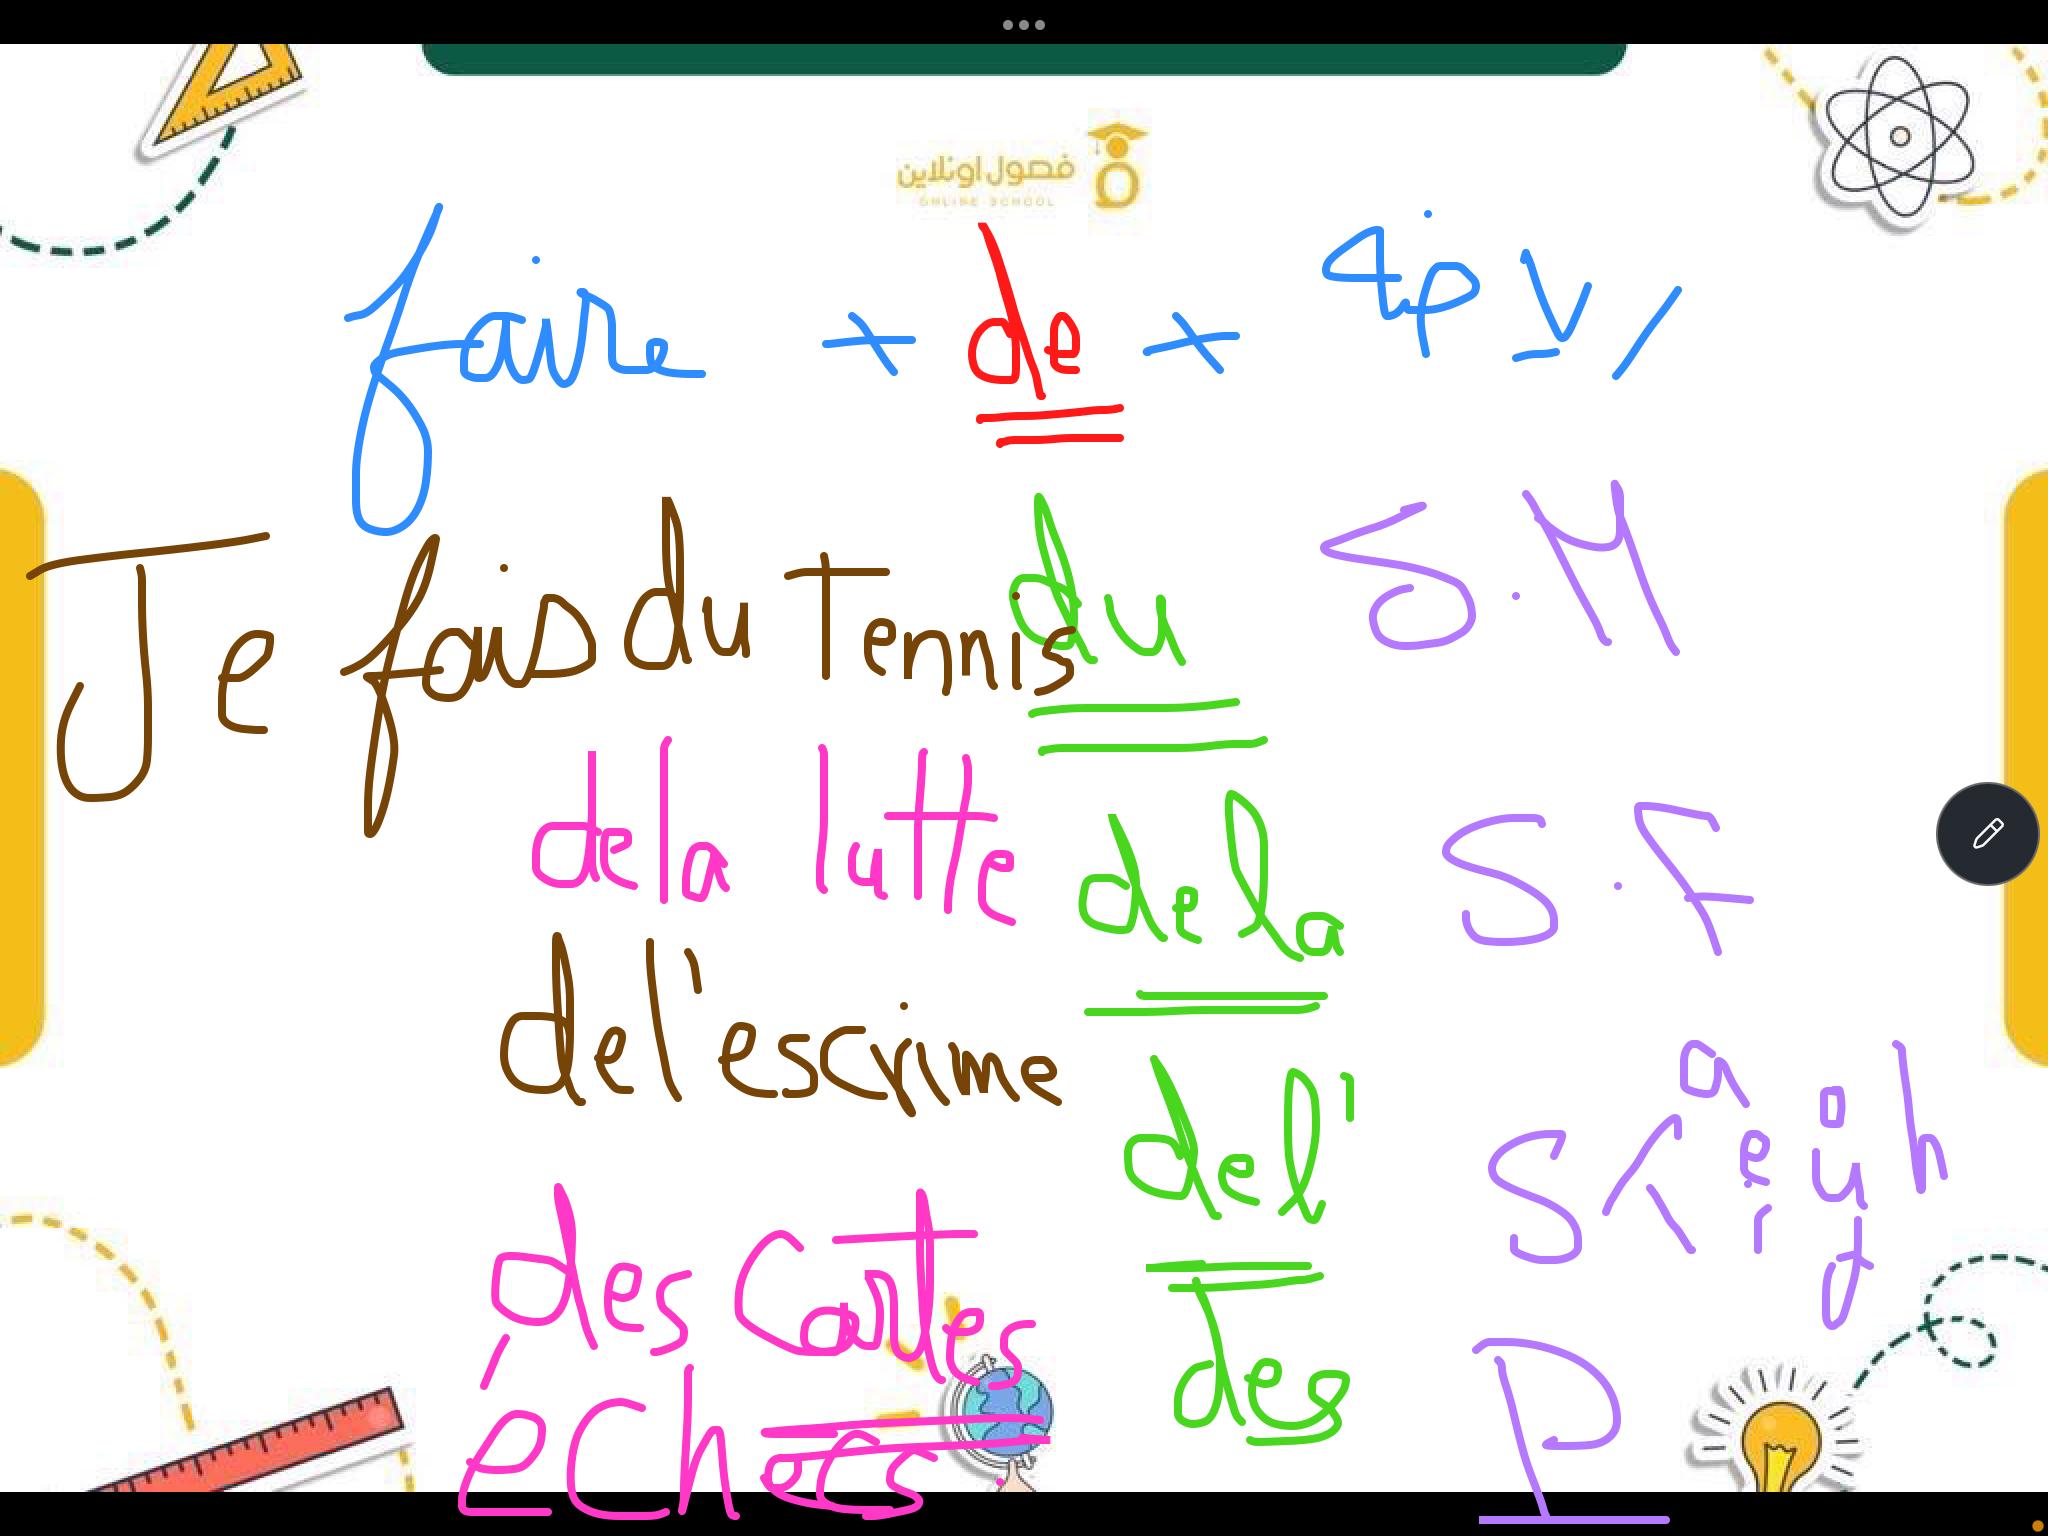 فصول اونلاين
ONLINE SCHOOL
faire + de +
Je fais du Tennis du S.M
dela lutte dela S.F
del'escrime del' S a e i o u y h
des Cartes des P
échecs